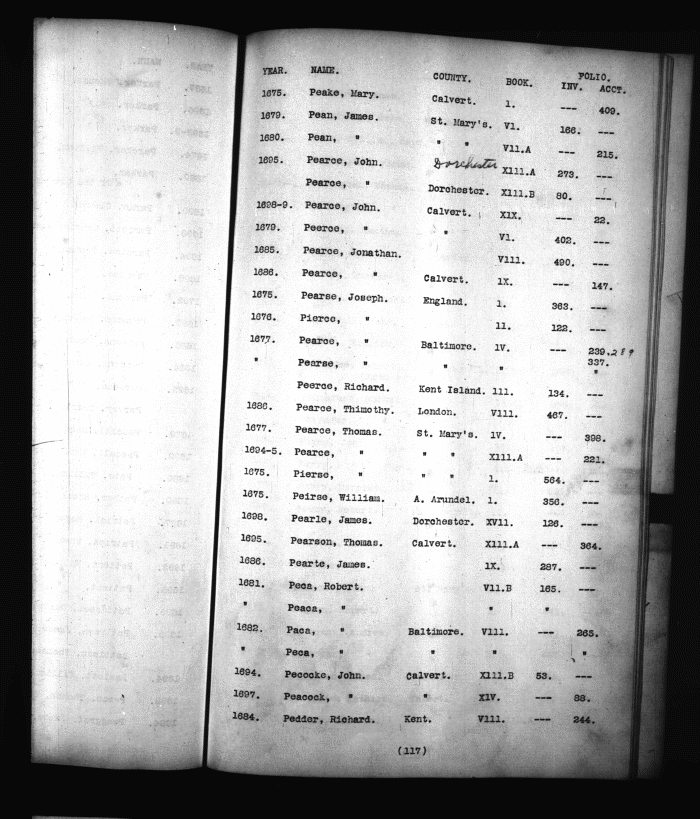 FOLIO.
YEAR. NAME. COUNTY. BOOK. INV. ACCT.
1675. Peake, Mary. Calvert. 1. --- 409.
1679. Pean, James. St. Mary's. V1. 166. ---
1680. Pean, " " " V11.A --- 215.
1695. Pearce, John. Dorchester X111.A 273. ---
Pearce, " Dorchester. X111.B 80. ---
1698-9. Pearce, John. Calvert. X1X. --- 22.
1679. Peerce, " " V1. 402. ---
1685. Pearce, Jonathan. V111. 490. ---
1686. Pearce, " Calvert. 1X. --- 147.
1675. Pearse, Joseph. England. 1. 363. ---
1676. Pierce, " 11. 122. ---
1677. Pearce, " Baltimore. 1V. --- 239. 289
337.
" Pearse, " " " "
Peerce, Richard. Kent Island. 111. 134. ---
1686. Pearce, Thimothy. London. V111. 467. ---
1677. Pearce, Thomas. St. Mary's. 1V. --- 398.
1694-5. Pearce, " " " X111.A --- 221.
1675. Pierse, " " " 1. 564. ---
1675. Peirse, William. A. Arundel. 1. 356. ---
1698. Pearle, James. Dorchester. XV11. 126. ---
1695. Pearson, Thomas. Calvert. X111.A --- 364.
1686. Pearte, James. 1X. 287. ---
1681. Peca, Robert. V11.B 165. ---
" Peaca, " " "
1682. Paca, " Baltimore. V111. --- 265.
" Peca, " " " "
1694. Pecocke, John. Calvert. X111.B 53. ---
1697. Peacock, " " X1V. --- 88.
1684. Pedder, Richard. Kent. V111. --- 244.
(117)